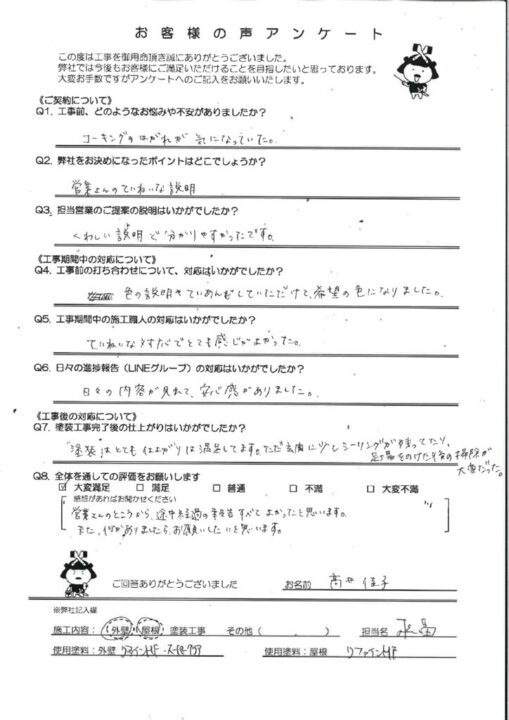 お客様の声アンケート
この度は工事を御用命頂き誠にありがとうございました。
弊社では今後もお客様にご満足いただけることを目指したいと思っております。
大変お手数ですがアンケートへのご記入をお願いいたします。
《ご契約について》
Q1. 工事前、どのようなお悩みや不安がありましたか？
コーキングのはがれが気になっていた。
Q2. 弊社をお決めになったポイントはどこでしょうか？
営業さんのていねいな説明
Q3. 担当営業のご提案の説明はいかがでしたか？
くわしい説明で分かりやすかったです。
《工事期間中の対応について》
Q4. 工事前の打ち合わせについて、対応はいかがでしたか？
色の説明やていあんをしていただけて、希望の色になりました。
Q5. 工事期間中の施工職人の対応はいかがでしたか？
ていねいなようすでとても感じがよかった。
Q6. 日々の進捗報告（LINEグループ）の対応はいかがでしたか？
日々の内容が見れて、安心感がありました。
《工事後の対応について》
Q7. 塗装工事完了後の仕上がりはいかがでしたか？
塗装はとても仕上がりは満足してます。ただ玄関に少しシーリングが残ってたり、
足場をのけた後の掃除が
大変だった。
Q8. 全体を通しての評価をお願いします
☑ 大変満足 □ 満足 □ 普通 □ 不満 □ 大変不満
感想があればお聞かせください
営業さんのところから、途中経過の報告すべてよかったと思います。
また、何かありましたら、お願いしたいと思います。
ご回答ありがとうございました
お名前 高井 佳子
※弊社記入欄
施工内容：（外壁・屋根）塗装工事 その他（ ） 担当名
使用塗料：外壁 リファインMF 使用塗料：屋根 リファインMF